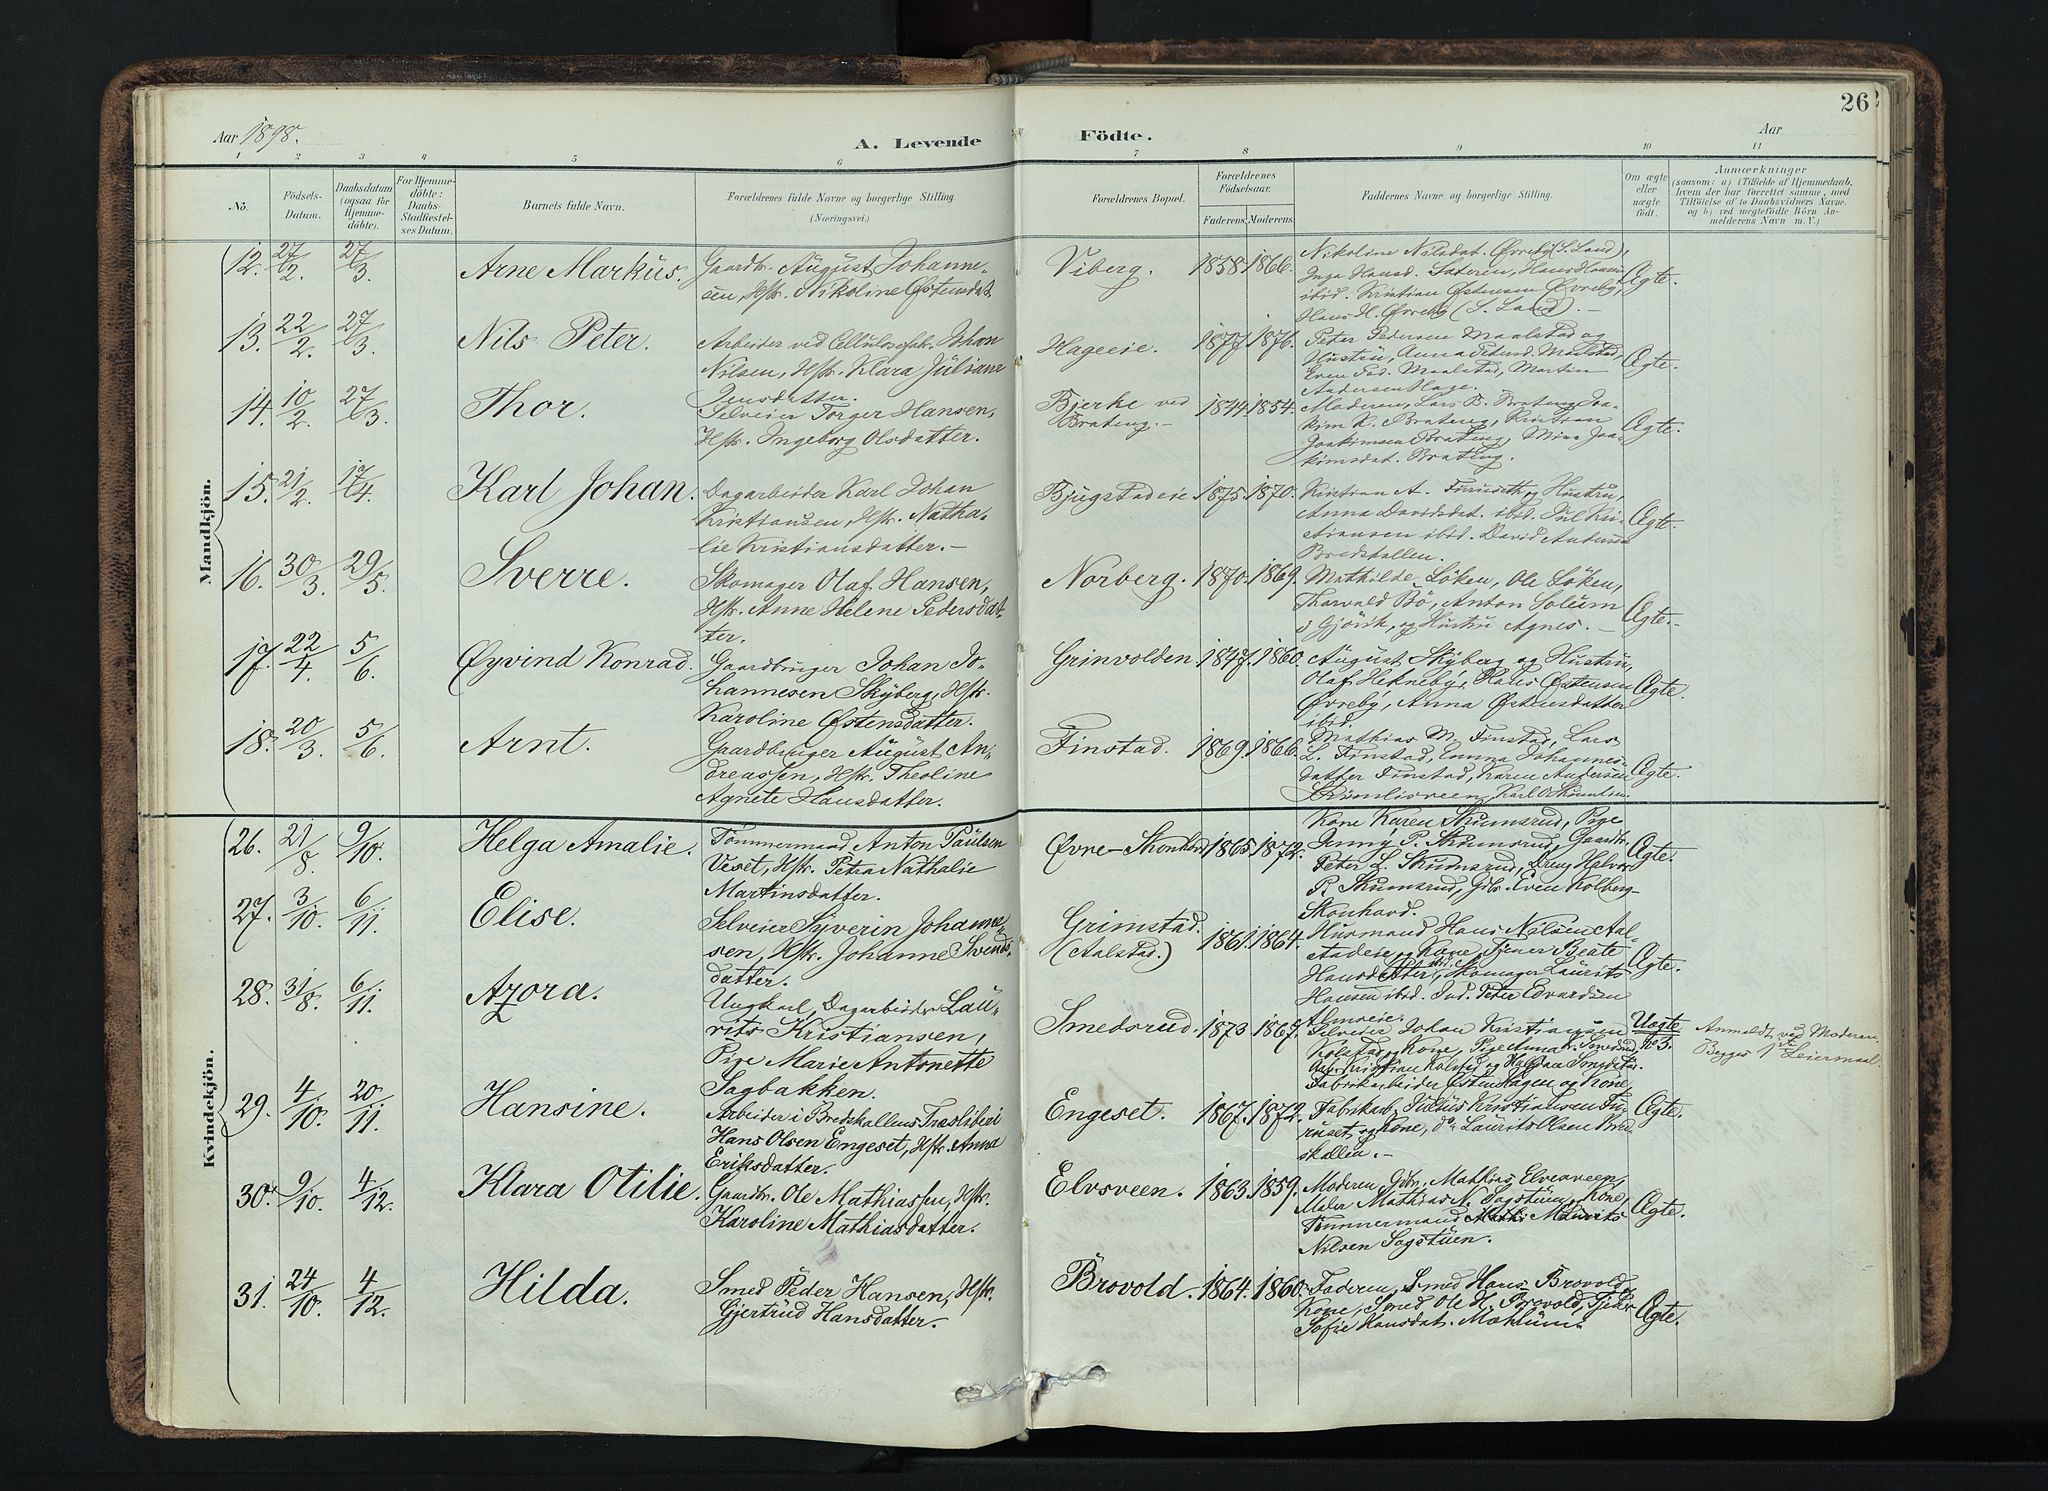 26
Aar 1898.
A. Levende Födte.
Aar
1 2 3 4 5 6 7 8 9 10 11
No.
Födsels-Datum.
Daabsdatum (ogsaa for Hjemme-döbte).
For Hjemme-döbte: Daabs-Stadfæstel-ses Datum.
Barnets fulde Navn.
Forældrenes fulde Navne og borgerlige Stilling. (Næringsvei.)
Forældrenes Bopæl.
Forældrenes Födselsaar.
Faderens. Moderens.
Faddernes Navne og borgerlige Stilling.
Om ægte eller uægte födt.
Anmærkninger
(saasom: a) i Tilfælde af Hjemmedaab, hvem der har forrettet samme, med Tilföielse af to Daabsvidners Navne. og b) ved uægtefödte Börn An-melderens Navn m. V.)
Mandkjön.
12. 27/2. 27/3. Arne Markus. Gaardbr. August Johanne-
sen, Hstr. Nikoline Østensdat.
Viberg. 1858. 1866. Nikoline Nilsdat. Øvreby (S. Land),
Inga Hansd. Sateren, Hans Hansen
ibid. Kristian Østensen Øvreby,
Hans H. Øvreby (S. Land). –
Ægte.
13. 22/2. 27/3. Nils Peter. Arbeider ved Cellulosefabr. Johan
Nilsen, Hstr. Klara Juliane
Jensdatter.
Hageeie. 1877. 1876. Peter Pedersen Maalstad og
Hustru, Anna Maalstad,
Even Maalstad, Martin
Andersen Hage.
Ægte.
14. 10/2. 27/3. Thor. Selveier Torger Hansen,
Hstr. Ingeborg Olsdatter.
Bjerke ved
Brateng. –
1844. 1854. Moderen, Lars B. Brateng, Joa-
kim K. Brateng, Kristian
Joakimsen Brateng, Mina Joa-
kimsdat. Brateng.
Ægte.
15. 21/2. 17/4. Karl Johan. Dagarbeider Karl Johan
Kristiansen, Hstr. Natha-
lie Kristiansdatter. –
Bjugstadeie 1875. 1870. Kristian A. Furuseth og Hustru,
Anna Davidsdat. ibid. Jul Kri-
stiansen ibid. David Andersen
Bredskallen.
Ægte.
16. 30/3. 29/5. Sverre. Skomager Olaf Hansen,
Hstr. Anne Helene Pedersdat-
ter.
Norberg. 1870. 1869. Mathilde Løken, Ole Løken,
Thorvald Bö, Anton Solum
i Gjövik, og Hustru Agnes. –
Ægte. –
17. 22/4. 5/6. Øyvind Konrad. Gaardbruger Johan Jo-
hannesen Skyberg, Hstr.
Karoline Østensdatter.
Grinvolden 1847. 1860. August Skyberg og Hustru,
Olaf Hekneby, Hans Østensen
Øvreby, Anna Østensdatter
ibid.
Ægte.
18. 20/3. 5/6. Arnt. Gaardbruger August An-
dreassen, Hstr. Theoline
Agnete Hansdatter.
Finstad. 1869. 1866. Mathias M. Finstad, Lars
L. Finstad, Emma Johannes-
datter Finstad, Karen Andersen
Karl
Ægte.
Kvindekjön.
26. 21/8. 9/10. Helga Amalie. Tömmermand Anton Paulsen
Veset, Hstr. Petra Nathalie
Martinsdatter.
Øvre-Skonhord 1865. 1872. Kone Karen Skumsrud, Pige
Jenny P. Skumsrud, Gaardbr.
Peter L. Skumsrud, Dreng Halvor
P. Skumsrud, Gdbr. Even Kolberg-
Skonhord.
Ægte.
27. 3/10. 6/11. Elise. Selveier Syverin Johanne-
sen, Hstr. Johanne Svends-
datter.
Grimstad.
(Aalstad.)
1861. 1864. Husmand Hans Nilsen Aal-
stadeie og Kone, Tjener Beate
Hansdatter ibid., Skomager Laurits
Hansen ibid. Ind. Peter Edvardsen
Almseie.
Ægte.
28. 31/8. 6/11. Azora. Ungkarl, Dagarbeider Lau-
rits Kristiansen,
Pige Marie Antonette
Sagbakken.
Smedsrud. 1873 1867. Selveier Johan Kristiansen
og Kone, Pige Anna Smedsrud,
Kristian og Halfdan
Fabrikarbeider Østen Hagen og Kone.
Uægte
No 3.
Anmeldt ved Moderen.
Begges 1ste Leiermaal.
29. 4/10. 20/11. Hansine. Arbeider i Bredskallens Træsliberi
Hans Olsen Engeset, Hstr. Anna
Eriksdatter.
Engeset. 1867. 1872. Fabrikarb. Julius Kristiansen Fu-
ruset og Kone, do. Laurits Olsen Bred-
skallen. –
Ægte.
30. 9/10. 4/12. Klara Otilie. Gaardbr. Ole Mathiassen, Hstr.
Karoline Mathiasdatter.
Elvsveen. 1863. 1859. Moderen, Gdbr. Mathias Elvesveen,
Maler Mathias N. Sagstuen, Kone,
Tömmermand Maurits
Nilsen Sagstuen.
Ægte.
31. 24/10. 4/12. Hilda. Smed Peder Hansen, Hstr.
Gjertrud Hansdatter. –
Brovold. 1864. 1860. Faderen, Smed Hans Brovold,
Kone, Smed Ole H. Brovold, Pige
Sofie Hansdat. Mæhlum.
Ægte.